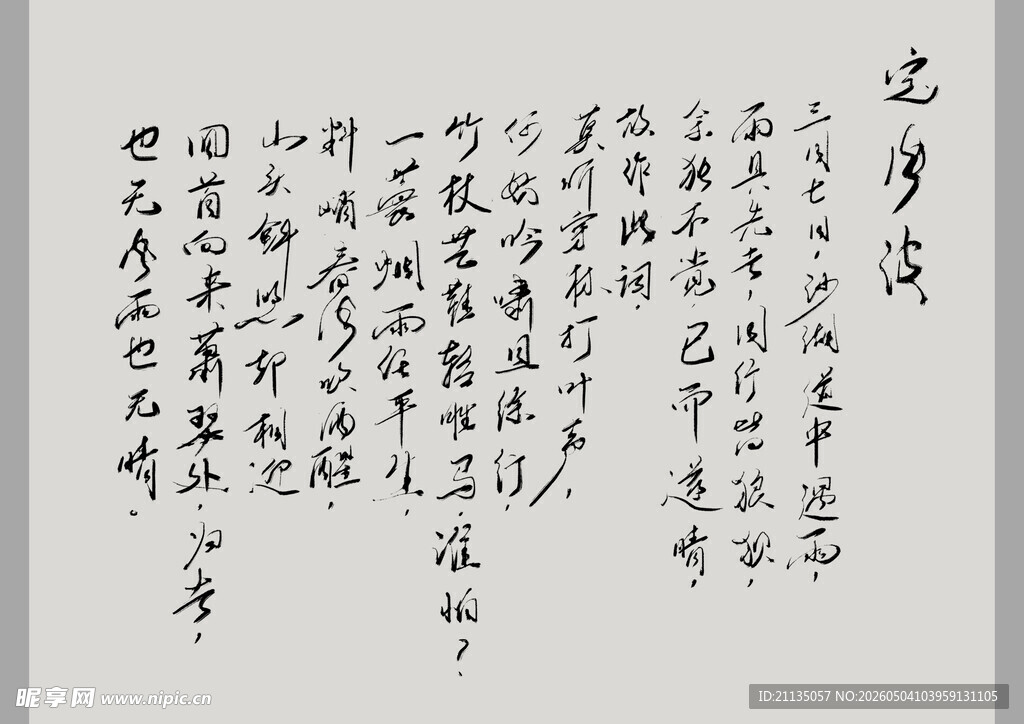 定风波
三月七日，沙湖道中遇雨，
雨具先去，同行皆狼狈，
余独不觉，已而遂晴，
故作此词，
莫听穿林打叶声，
何妨吟啸且徐行，
竹杖芒鞋轻唯马，谁怕？
一蓑烟雨任平生，
料峭春风吹酒醒，
山头斜照却相迎
回首向来萧瑟处，归去，
也无风雨也无晴。
昵享网 www.nipic.cn
ID:21135057 NO:20260504103959131105